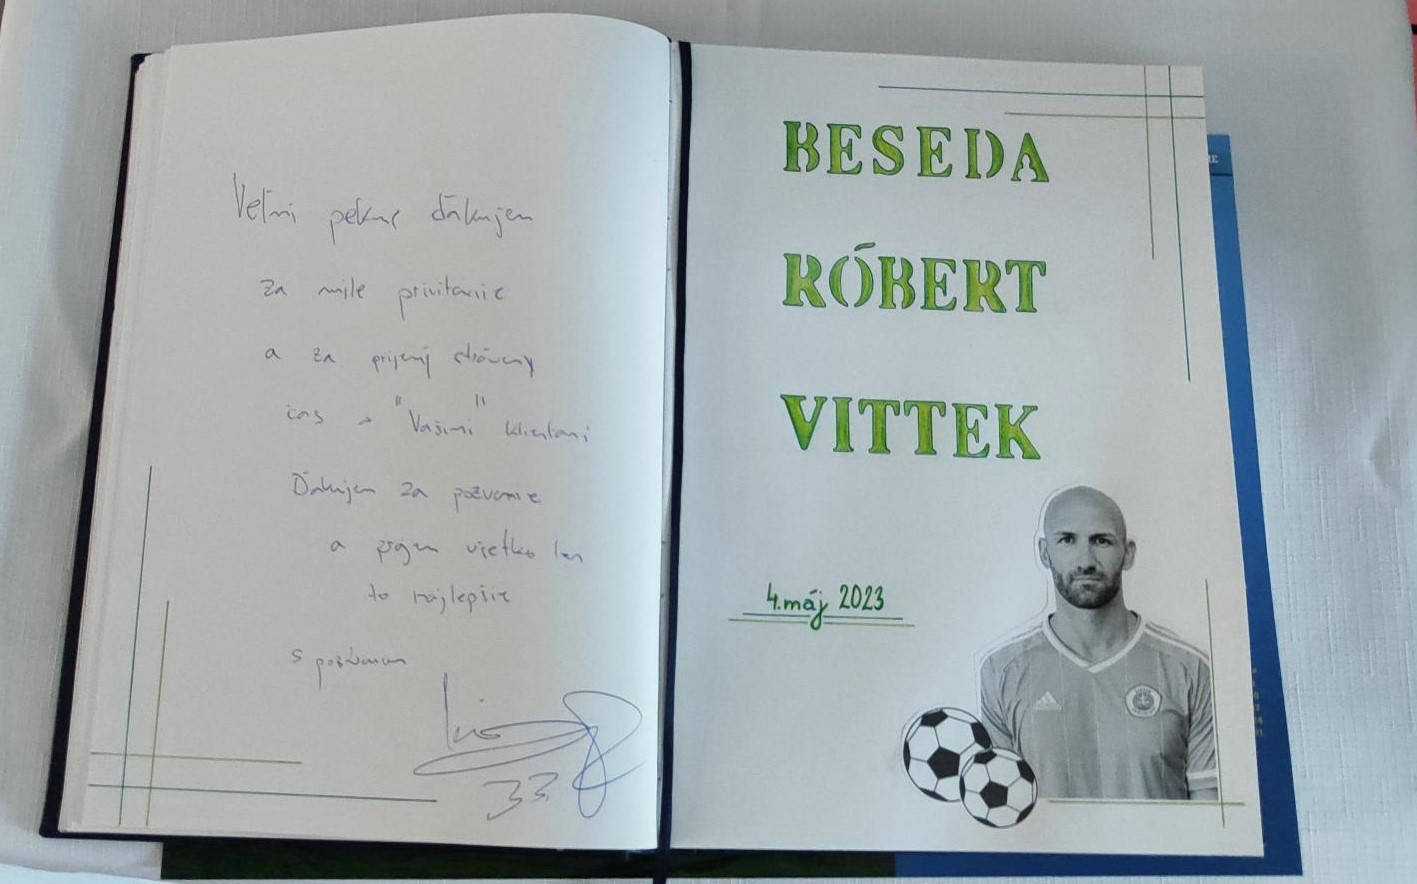 Veľmi pekne ďakujem
za milé privítanie
a za príjemný strávený
čas s "Vašimi" klientami
Ďakujem za pozvanie
a prajem všetko len
to najlepšie
s pozdravom
33.
BESEDA
RÓBERT
VITTEK
4. máj 2023